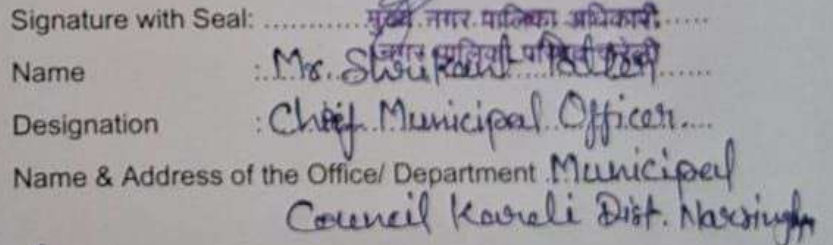 Signature with Seal: ............मुख्य नगर पालिका अधिकारी......
नगर पालिका परिषद करेली
Name : Mr.
Designation : Chief Municipal Officer....
Name & Address of the Office/ Department Municipal
Council Kareli Dist. Narsingh